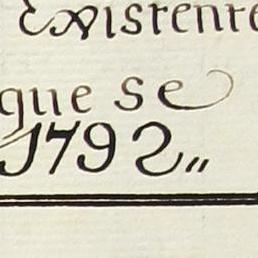 existente
que se
1792„